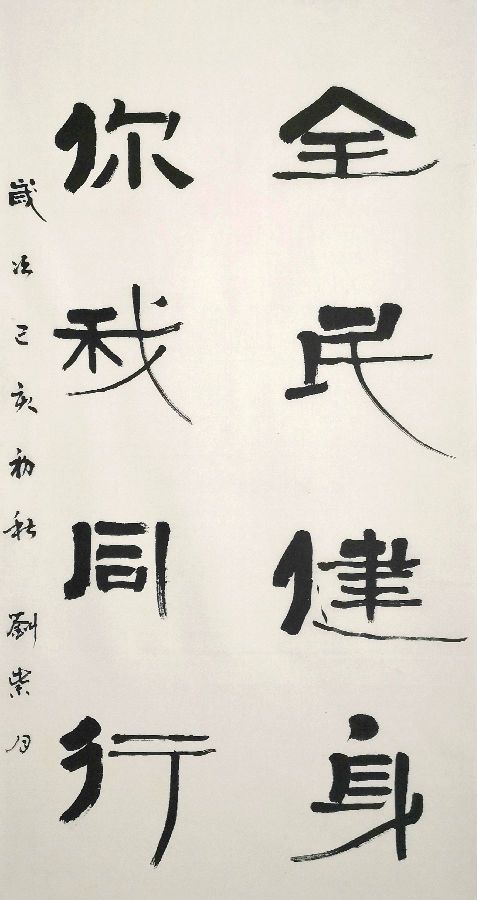 全民健身
你我同行
歲次己亥初秋 劉崇月